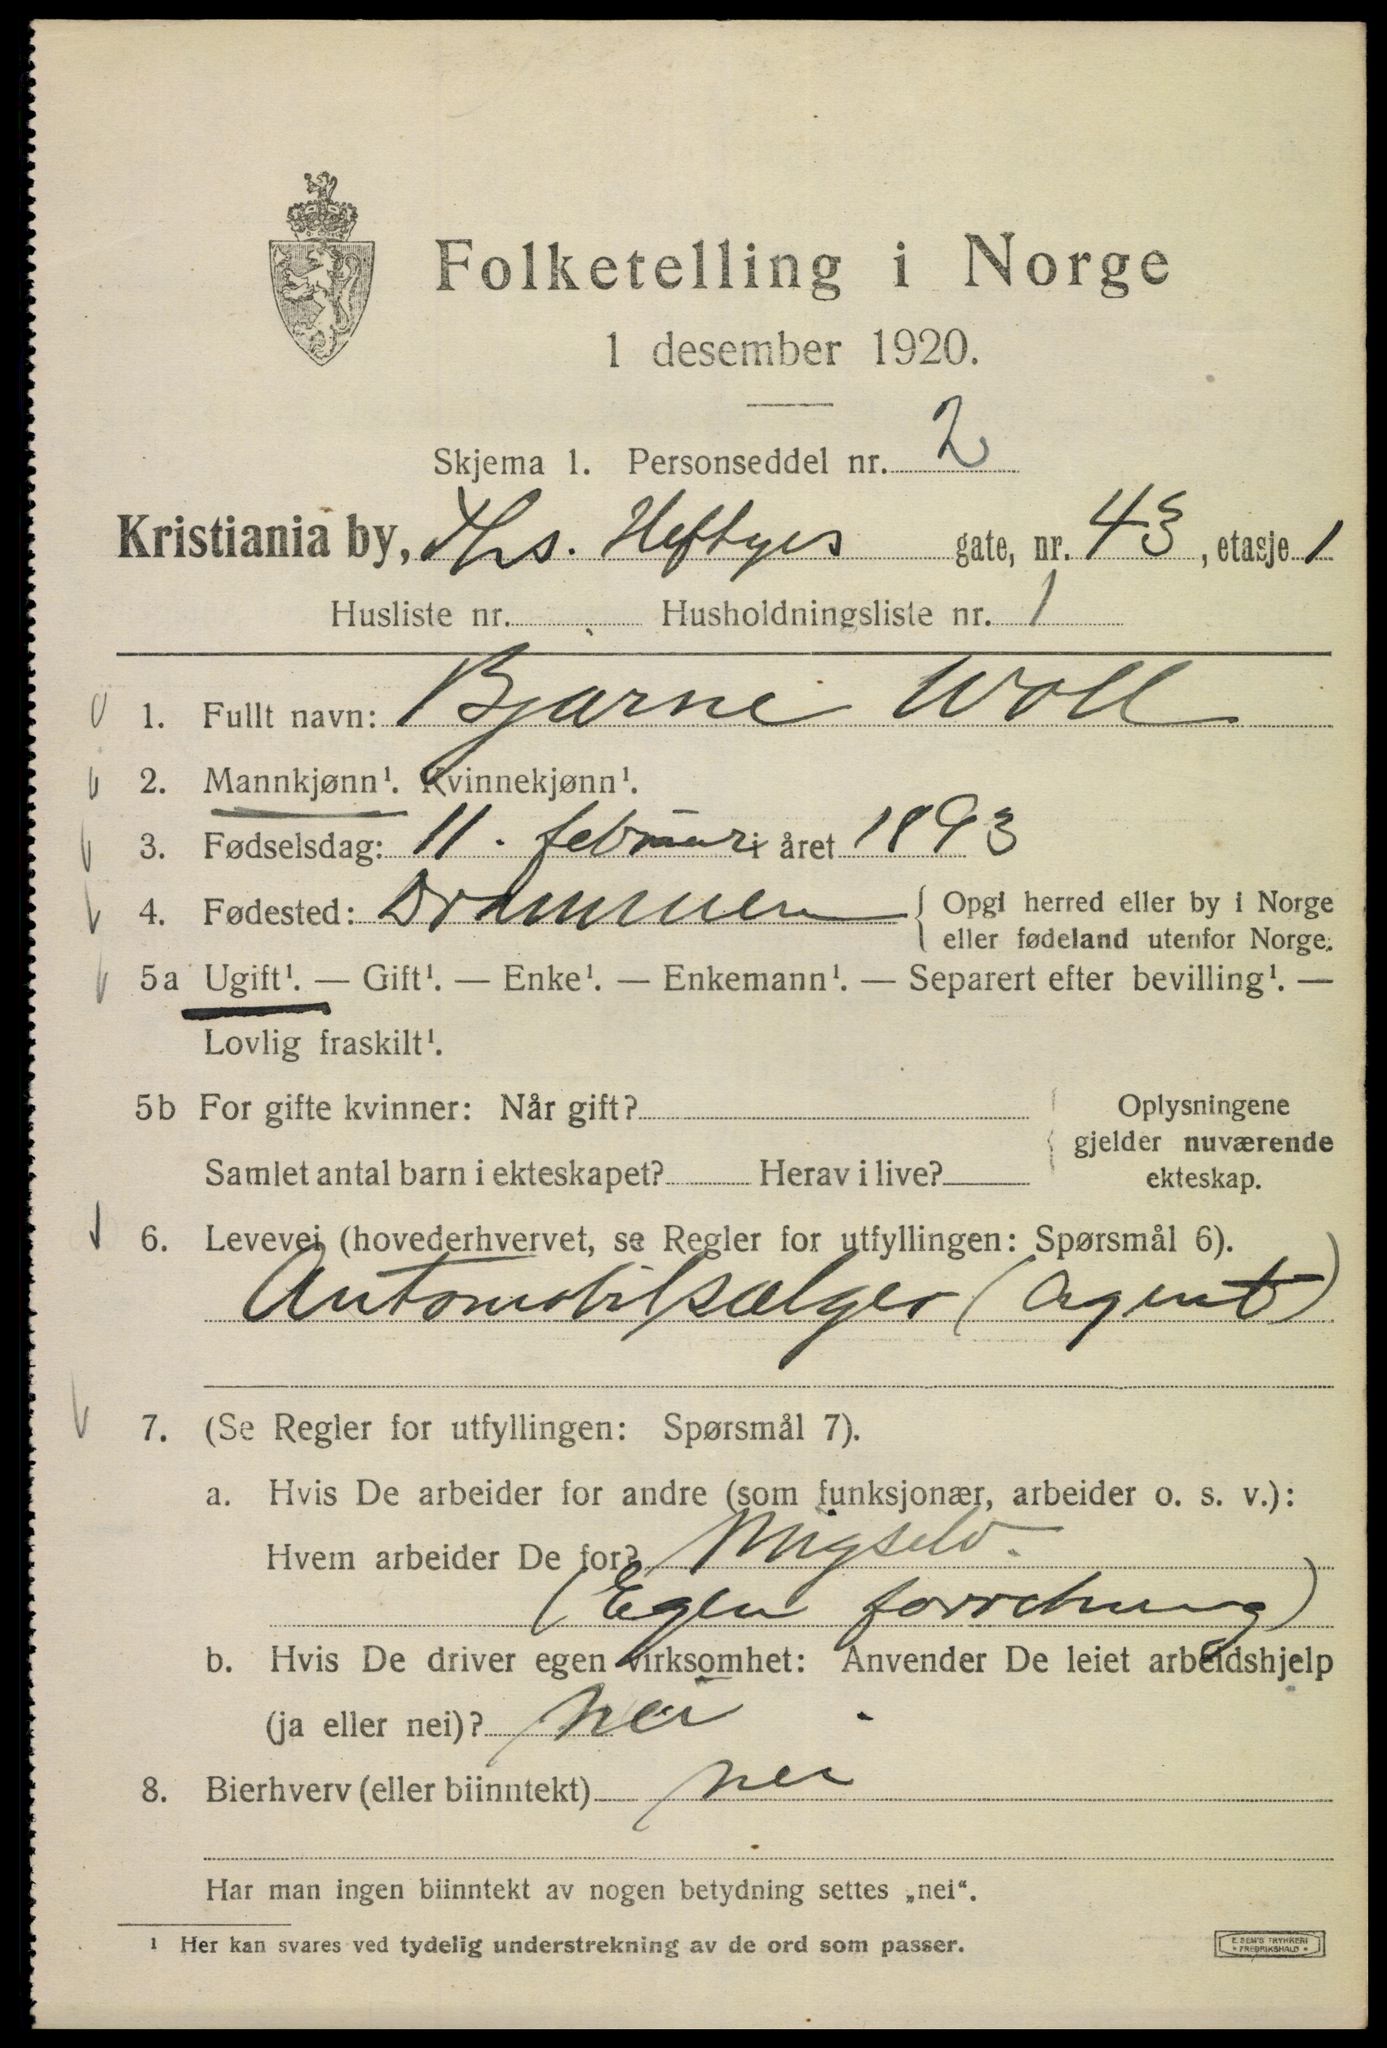 Folketelling i Norge
1 desember 1920.
Skjema 1. Personseddel nr. 2
Kristiania by, Ths. Heftyes gate, nr. 43, etasje 1
Husliste nr. Husholdningsliste nr. 1
1. Fullt navn: Bjarne Woll
2. Mannkjønn¹. Kvinnekjønn¹.
3. Fødselsdag: 11. februar i året 1893
4. Fødested: Drammen { Opgi herred eller by i Norge
eller fødeland utenfor Norge.
5a Ugift¹. — Gift¹. — Enke¹. — Enkemann¹. — Separert efter bevilling¹. —
Lovlig fraskilt¹.
5b For gifte kvinner: Når gift?
Samlet antal barn i ekteskapet? Herav i live?
Oplysningene
gjelder nuværende
ekteskap.
6. Levevei (hovederhvervet, se Regler for utfyllingen: Spørsmål 6).
Automobilsælger (agent)
7. (Se Regler for utfyllingen: Spørsmål 7).
a. Hvis De arbeider for andre (som funksjonær, arbeider o. s. v.):
Hvem arbeider De for? Migselv.
(Egen forretning)
b. Hvis De driver egen virksomhet: Anvender De leiet arbeidshjelp
(ja eller nei)? nei
8. Bierhverv (eller biinntekt) nei
Har man ingen biinntekt av nogen betydning settes „nei“.
¹ Her kan svares ved tydelig understrekning av de ord som passer.
E. SEM'S TRYKKERI
* FREDRIKSHALD *